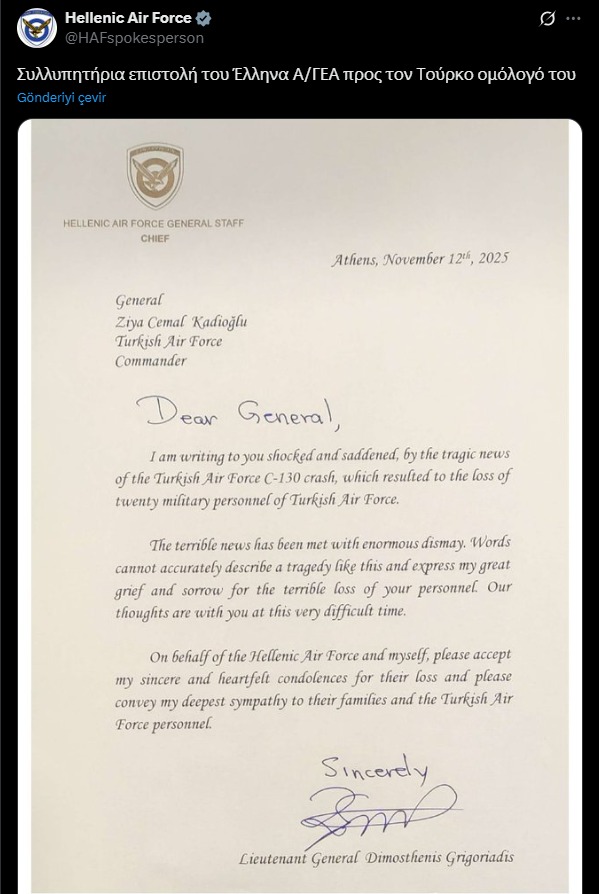 Hellenic Air Force
@HAFspokesperson
Συλλυπητήρια επιστολή του Έλληνα Α/ΓΕΑ προς τον Τούρκο ομόλογό του
Gönderiyi çevir
HELLENIC AIR FORCE GENERAL STAFF
CHIEF
Athens, November 12th, 2025
General
Ziya Cemal Kadioğlu
Turkish Air Force
Commander
Dear General,
I am writing to you shocked and saddened, by the tragic news
of the Turkish Air Force C-130 crash, which resulted to the loss of
twenty military personnel of Turkish Air Force.
The terrible news has been met with enormous dismay. Words
cannot accurately describe a tragedy like this and express my great
grief and sorrow for the terrible loss of your personnel. Our
thoughts are with you at this very difficult time.
On behalf of the Hellenic Air Force and myself, please accept
my sincere and heartfelt condolences for their loss and please
convey my deepest sympathy to their families and the Turkish Air
Force personnel.
Sincerely
Lieutenant General Dimosthenis Grigoriadis